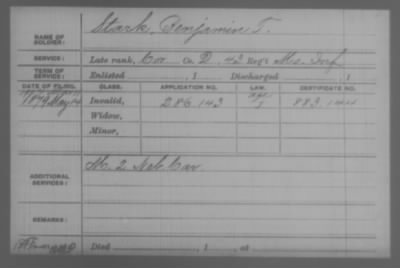 NAME OF SOLDIER: Stark, Benjamin T.
SERVICE: Late rank, Cor Co. D, 42 Reg't Mo. Inf
TERM OF SERVICE: Enlisted , 1 Discharged , 1
DATE OF FILING. CLASS. APPLICATION NO. LAW. CERTIFICATE NO.
1879 May 14 Invalid, 286.143 883.144
Widow,
Minor,
ADDITIONAL SERVICES: M. 2 Neb. Cav.
REMARKS:
Died , 1 , at